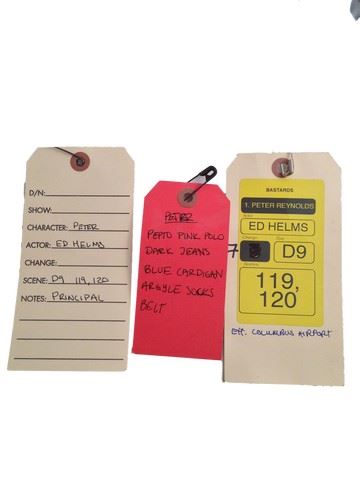 D/N:
SHOW:
CHARACTER: PETER
ACTOR: ED HELMS
CHANGE:
SCENE: D9 119,120
NOTES: PRINCIPAL
PETER
PEPTO PINK POLO
DARK JEANS
BLUE CARDIGAN
ARGYLE SOCKS
BELT
BASTARDS
1. PETER REYNOLDS
Actor
ED HELMS
Change Day
7 D9
119,
120
EXT. COLUMBUS AIRPORT